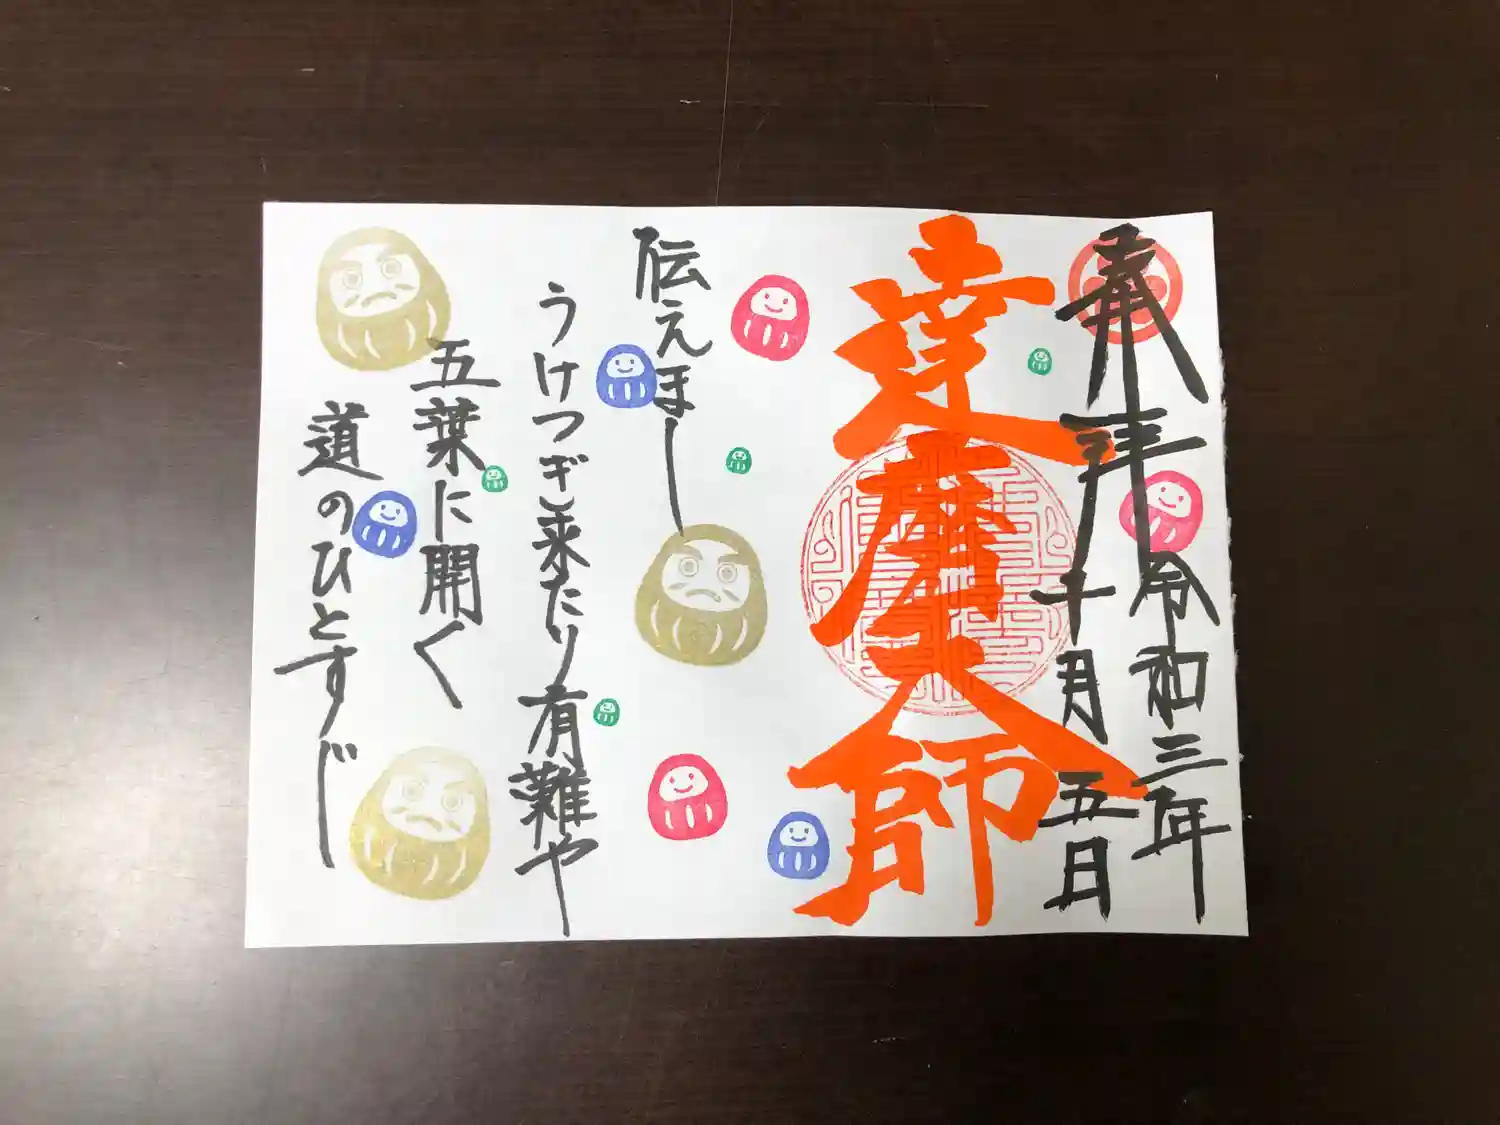 奉拝
令和三年
十月五日
達磨大師
伝えまし
うけつぎ来たり有難や
五葉に開く
道のひとすじ